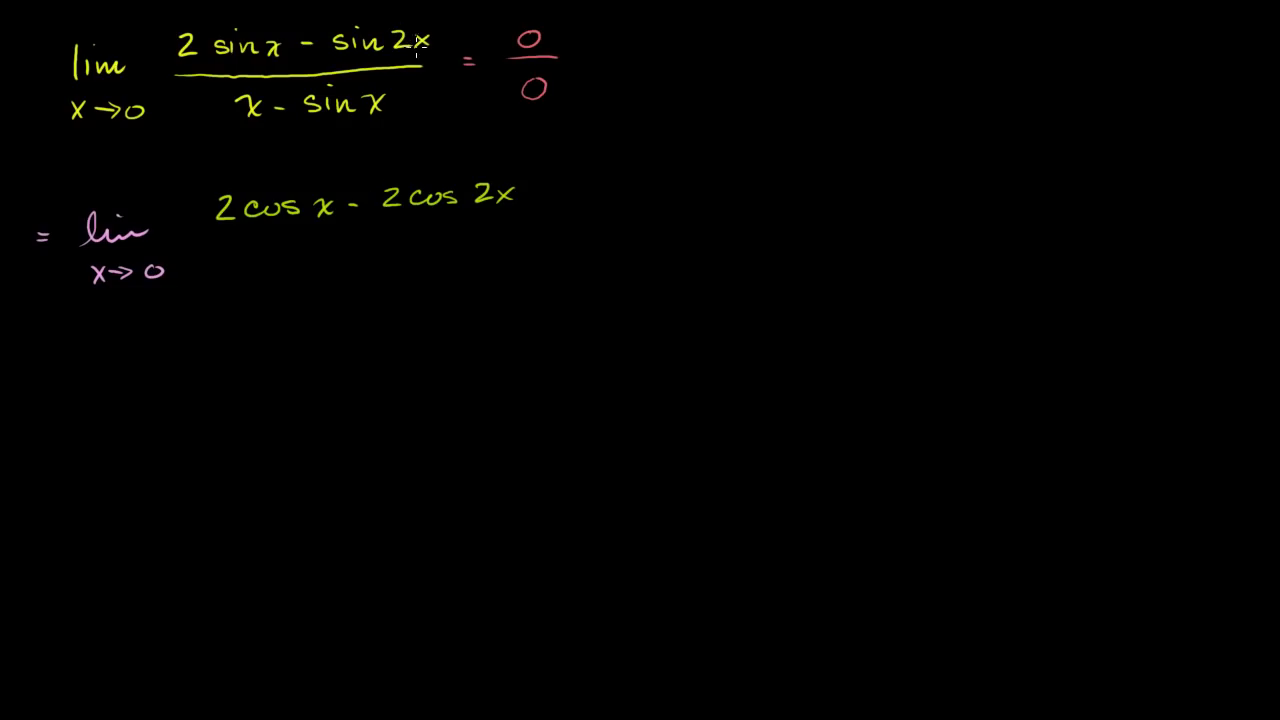 lim x→0 (2 sin x - sin 2x) / (x - sin x) = 0/0
= lim x→0 2 cos x - 2 cos 2x